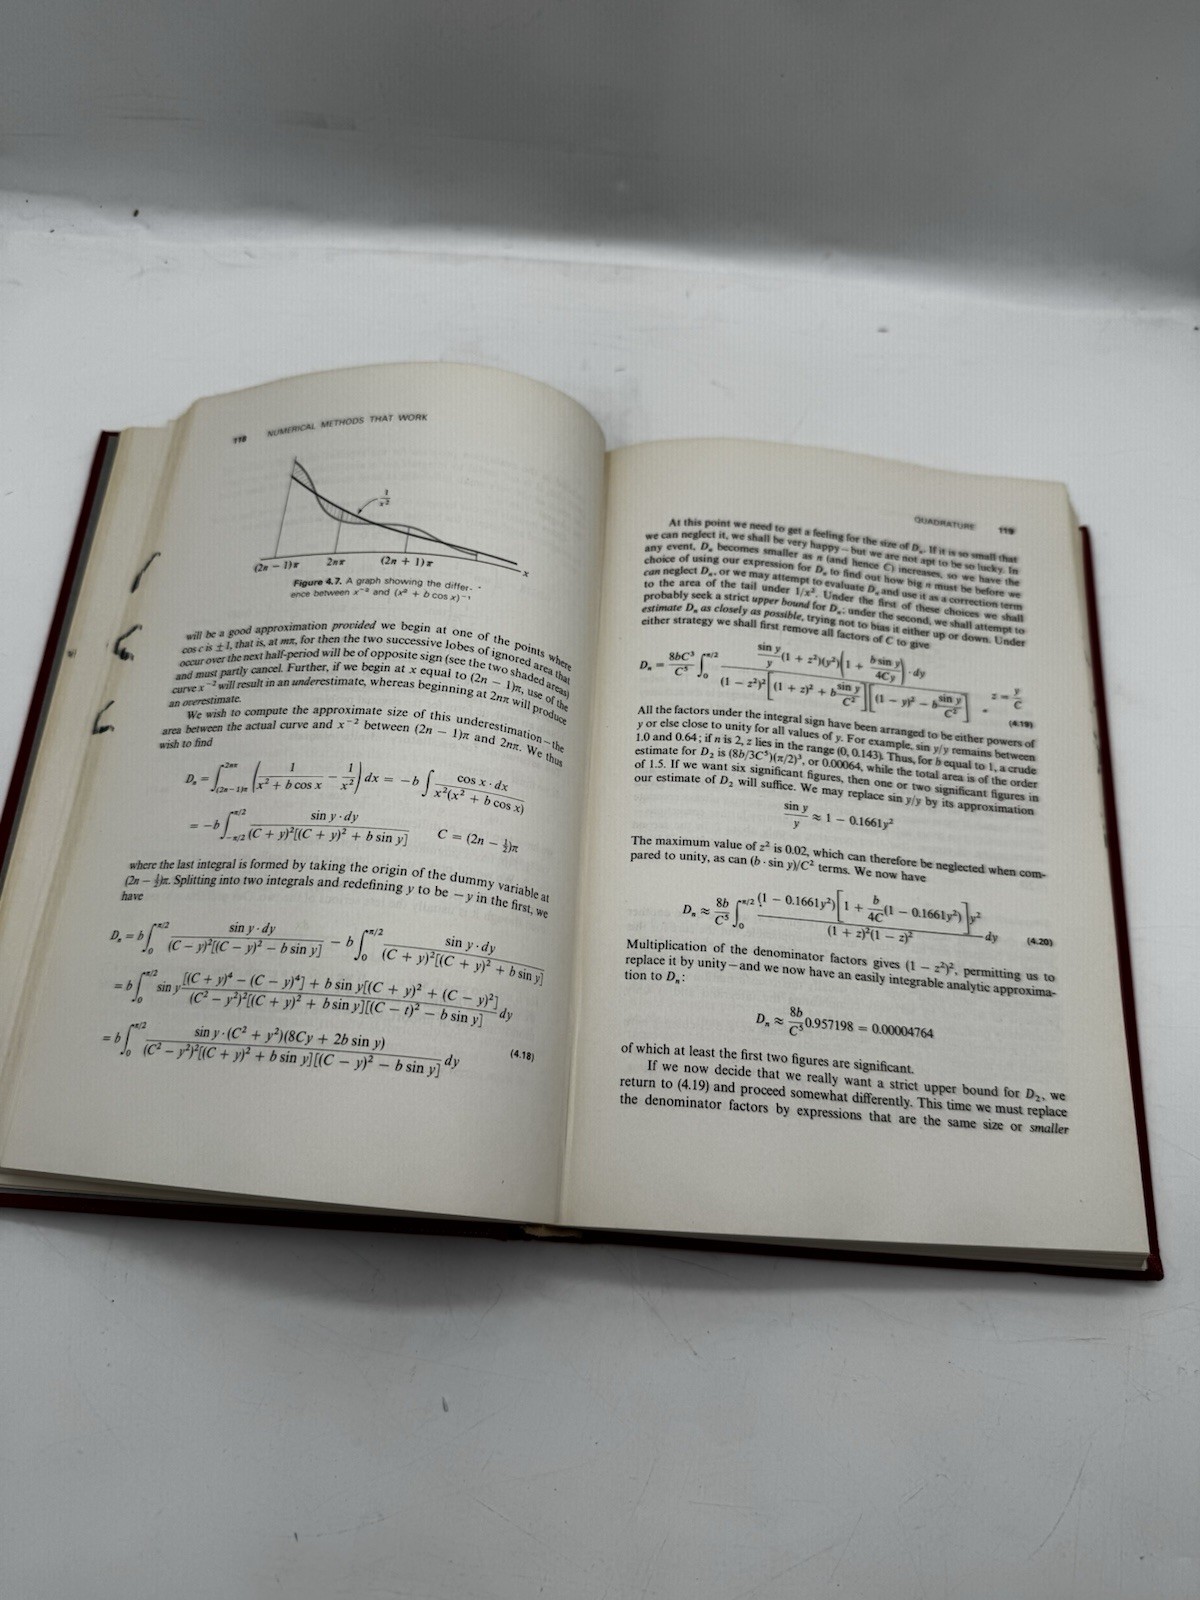 118 NUMERICAL METHODS THAT WORK
1/x²
(2n − 1)π 2nπ (2n + 1)π x
Figure 4.7. A graph showing the differ-
ence between x⁻² and (x² + b cos x)⁻¹
will be a good approximation provided we begin at one of the points where
cos c is ±1, that is, at mπ, for then the two successive lobes of ignored area that
occur over the next half-period will be of opposite sign (see the two shaded areas)
and must partly cancel. Further, if we begin at x equal to (2n − 1)π, use of the
curve x⁻² will result in an underestimate, whereas beginning at 2nπ will produce
an overestimate.
We wish to compute the approximate size of this underestimation—the
area between the actual curve and x⁻² between (2n − 1)π and 2nπ. We thus
wish to find
Dₙ = ∫_{(2n−1)π}^{2nπ} (1/(x² + b cos x) − 1/x²) dx = −b ∫ cos x · dx/(x²(x² + b cos x))
= −b ∫_{−π/2}^{π/2} sin y · dy/((C + y)²[(C + y)² + b sin y]) C = (2n − ½)π
where the last integral is formed by taking the origin of the dummy variable at
(2n − ½)π. Splitting into two integrals and redefining y to be −y in the first, we
have
Dₙ = b ∫₀^{π/2} sin y · dy/((C − y)²[(C − y)² − b sin y]) − b ∫₀^{π/2} sin y · dy/((C + y)²[(C + y)² + b sin y])
= b ∫₀^{π/2} sin y [(C + y)⁴ − (C − y)⁴] + b sin y[(C + y)² + (C − y)²]/((C² − y²)²[(C + y)² + b sin y][(C − t)² − b sin y]) dy
= b ∫₀^{π/2} sin y · (C² + y²)(8Cy + 2b sin y)/((C² − y²)²[(C + y)² + b sin y][(C − y)² − b sin y]) dy (4.18)
QUADRATURE 119
At this point we need to get a feeling for the size of Dₙ. If it is so small that
we can neglect it, we shall be very happy—but we are not apt to be so lucky. In
any event, Dₙ becomes smaller as n (and hence C) increases, so we have the
choice of using our expression for Dₙ to find out how big n must be before we
can neglect Dₙ, or we may attempt to evaluate Dₙ and use it as a correction term
to the area of the tail under 1/x². Under the first of these choices we shall
probably seek a strict upper bound for Dₙ; under the second, we shall attempt to
estimate Dₙ as closely as possible, trying not to bias it either up or down. Under
either strategy we shall first remove all factors of C to give
Dₙ = 8bC³/C⁵ ∫₀^{π/2} (sin y/y)(1 + z²)(y²)(1 + b sin y/4Cy) · dy/((1 − z²)²[(1 + z)² + b sin y/C²][(1 − y)² − b sin y/C²]) , z = y/C (4.19)
All the factors under the integral sign have been arranged to be either powers of
y or else close to unity for all values of y. For example, sin y/y remains between
1.0 and 0.64; if n is 2, z lies in the range (0, 0.143). Thus, for b equal to 1, a crude
estimate for D₂ is (8b/3C⁵)(π/2)³, or 0.00064, while the total area is of the order
of 1.5. If we want six significant figures, then one or two significant figures in
our estimate of D₂ will suffice. We may replace sin y/y by its approximation
sin y/y ≈ 1 − 0.1661y²
The maximum value of z² is 0.02, which can therefore be neglected when com-
pared to unity, as can (b · sin y)/C² terms. We now have
Dₙ ≈ 8b/C⁵ ∫₀^{π/2} (1 − 0.1661y²)[1 + b/4C(1 − 0.1661y²)]y²/((1 + z)²(1 − z)²) dy (4.20)
Multiplication of the denominator factors gives (1 − z²)², permitting us to
replace it by unity—and we now have an easily integrable analytic approxima-
tion to Dₙ:
Dₙ ≈ 8b/C⁵ 0.957198 = 0.00004764
of which at least the first two figures are significant.
If we now decide that we really want a strict upper bound for D₂, we
return to (4.19) and proceed somewhat differently. This time we must replace
the denominator factors by expressions that are the same size or smaller